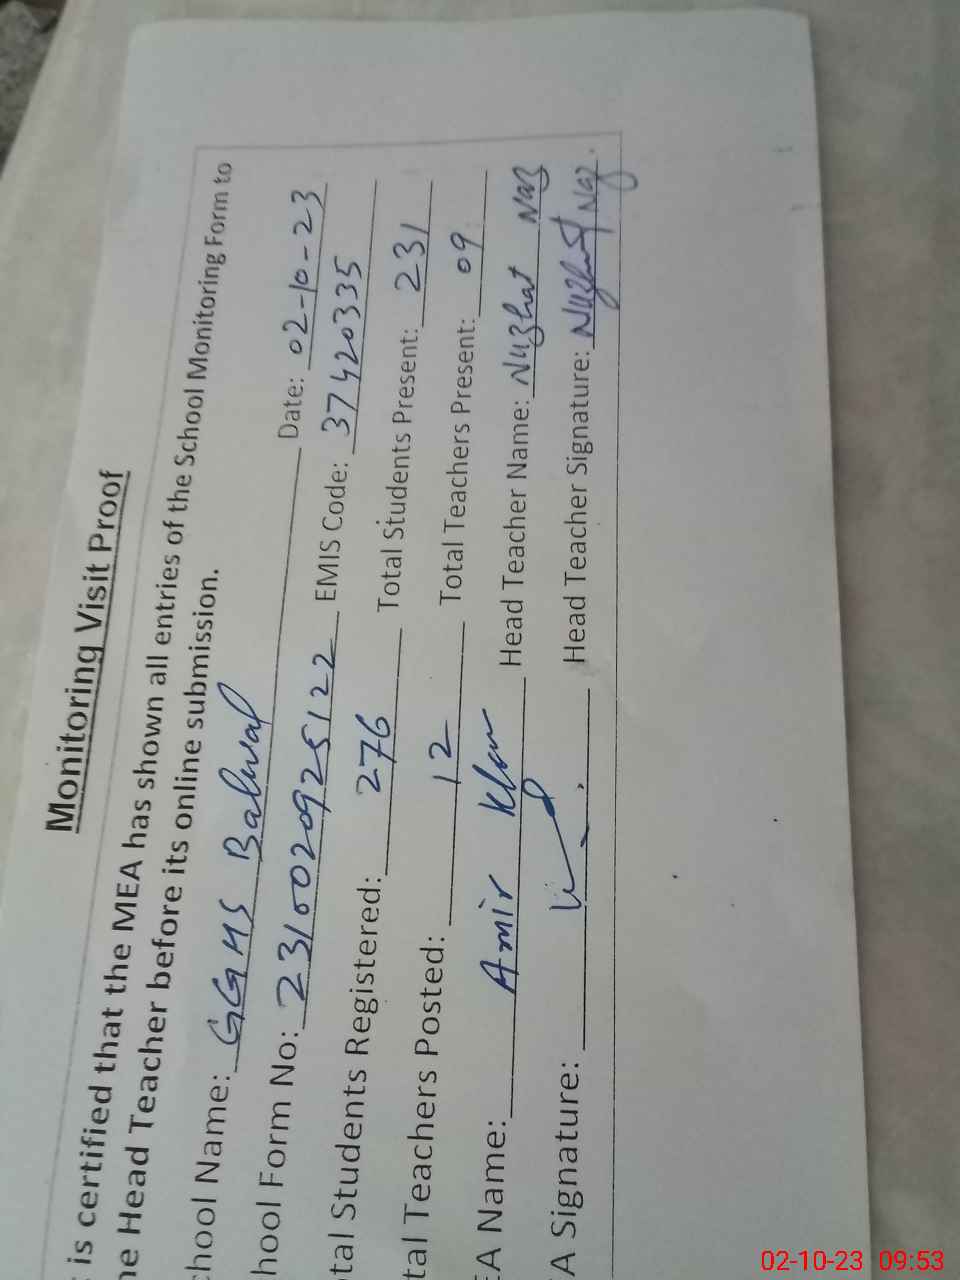 Monitoring Visit Proof
is certified that the MEA has shown all entries of the School Monitoring Form to
he Head Teacher before its online submission.
chool Name: GGHS Balwal Date: 02-10-23
hool Form No: 2310020925122 EMIS Code: 37420335
tal Students Registered: 276 Total Students Present: 231
tal Teachers Posted: 12 Total Teachers Present: 09
EA Name: Amir Khan Head Teacher Name: Nuzhat Naz
A Signature: Head Teacher Signature: Nuzhat Naz.
02-10-23 09:53